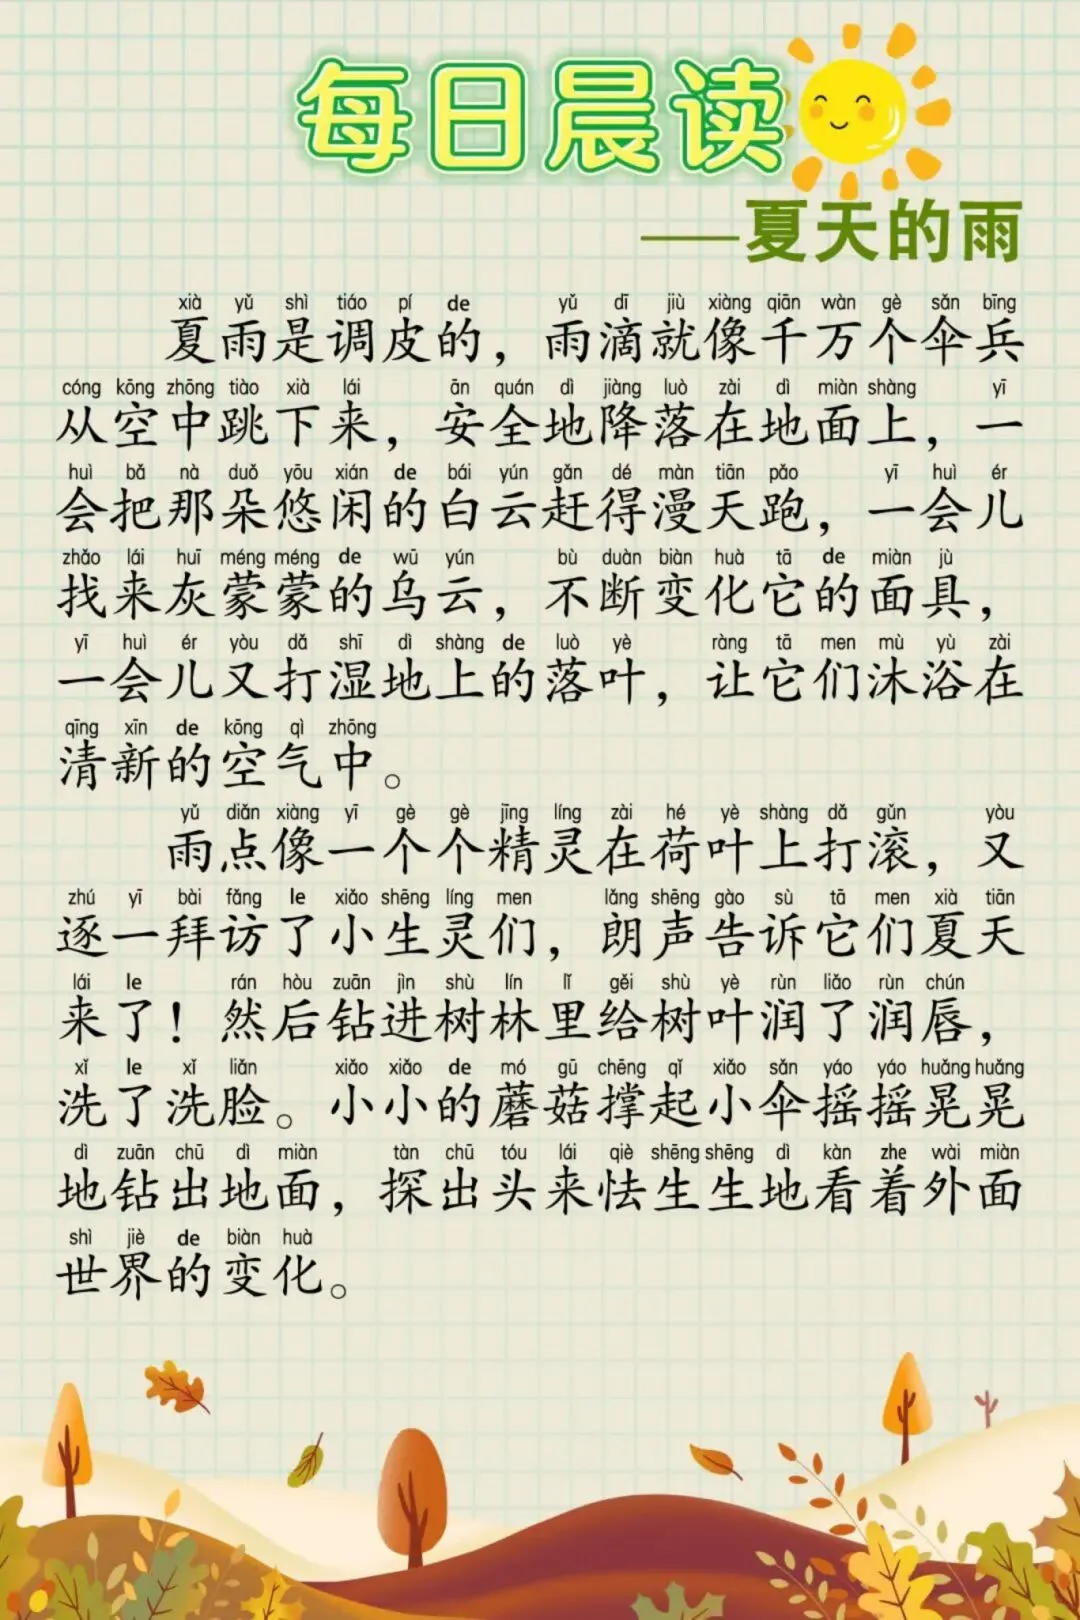 每日晨读
——夏天的雨
xià yǔ shì tiáo pí de yǔ dī jiù xiàng qiān wàn gè sǎn bīng
夏雨是调皮的，雨滴就像千万个伞兵
cóng kōng zhōng tiào xià lái ān quán dì jiàng luò zài dì miàn shàng yī
从空中跳下来，安全地降落在地面上，一
huì bǎ nà duǒ yōu xián de bái yún gǎn dé màn tiān pǎo yī huì ér
会把那朵悠闲的白云赶得漫天跑，一会儿
zhǎo lái huī méng méng de wū yún bù duàn biàn huà tā de miàn jù
找来灰蒙蒙的乌云，不断变化它的面具，
yī huì ér yòu dǎ shī dì shàng de luò yè ràng tā men mù yù zài
一会儿又打湿地上的落叶，让它们沐浴在
qīng xīn de kōng qì zhōng
清新的空气中。
yǔ diǎn xiàng yī gè gè jīng líng zài hé yè shàng dǎ gǔn yòu
雨点像一个个精灵在荷叶上打滚，又
zhú yī bài fǎng le xiǎo shēng líng men lǎng shēng gào sù tā men xià tiān
逐一拜访了小生灵们，朗声告诉它们夏天
lái le rán hòu zuān jìn shù lín lǐ gěi shù yè rùn liǎo rùn chún
来了！然后钻进树林里给树叶润了润唇，
xǐ le xǐ liǎn xiǎo xiǎo de mó gū chēng qǐ xiǎo sǎn yáo yáo huǎng huǎng
洗了洗脸。小小的蘑菇撑起小伞摇摇晃晃
dì zuān chū dì miàn tàn chū tóu lái qiè shēng shēng dì kàn zhe wài miàn
地钻出地面，探出头来怯生生地看着外面
shì jiè de biàn huà
世界的变化。